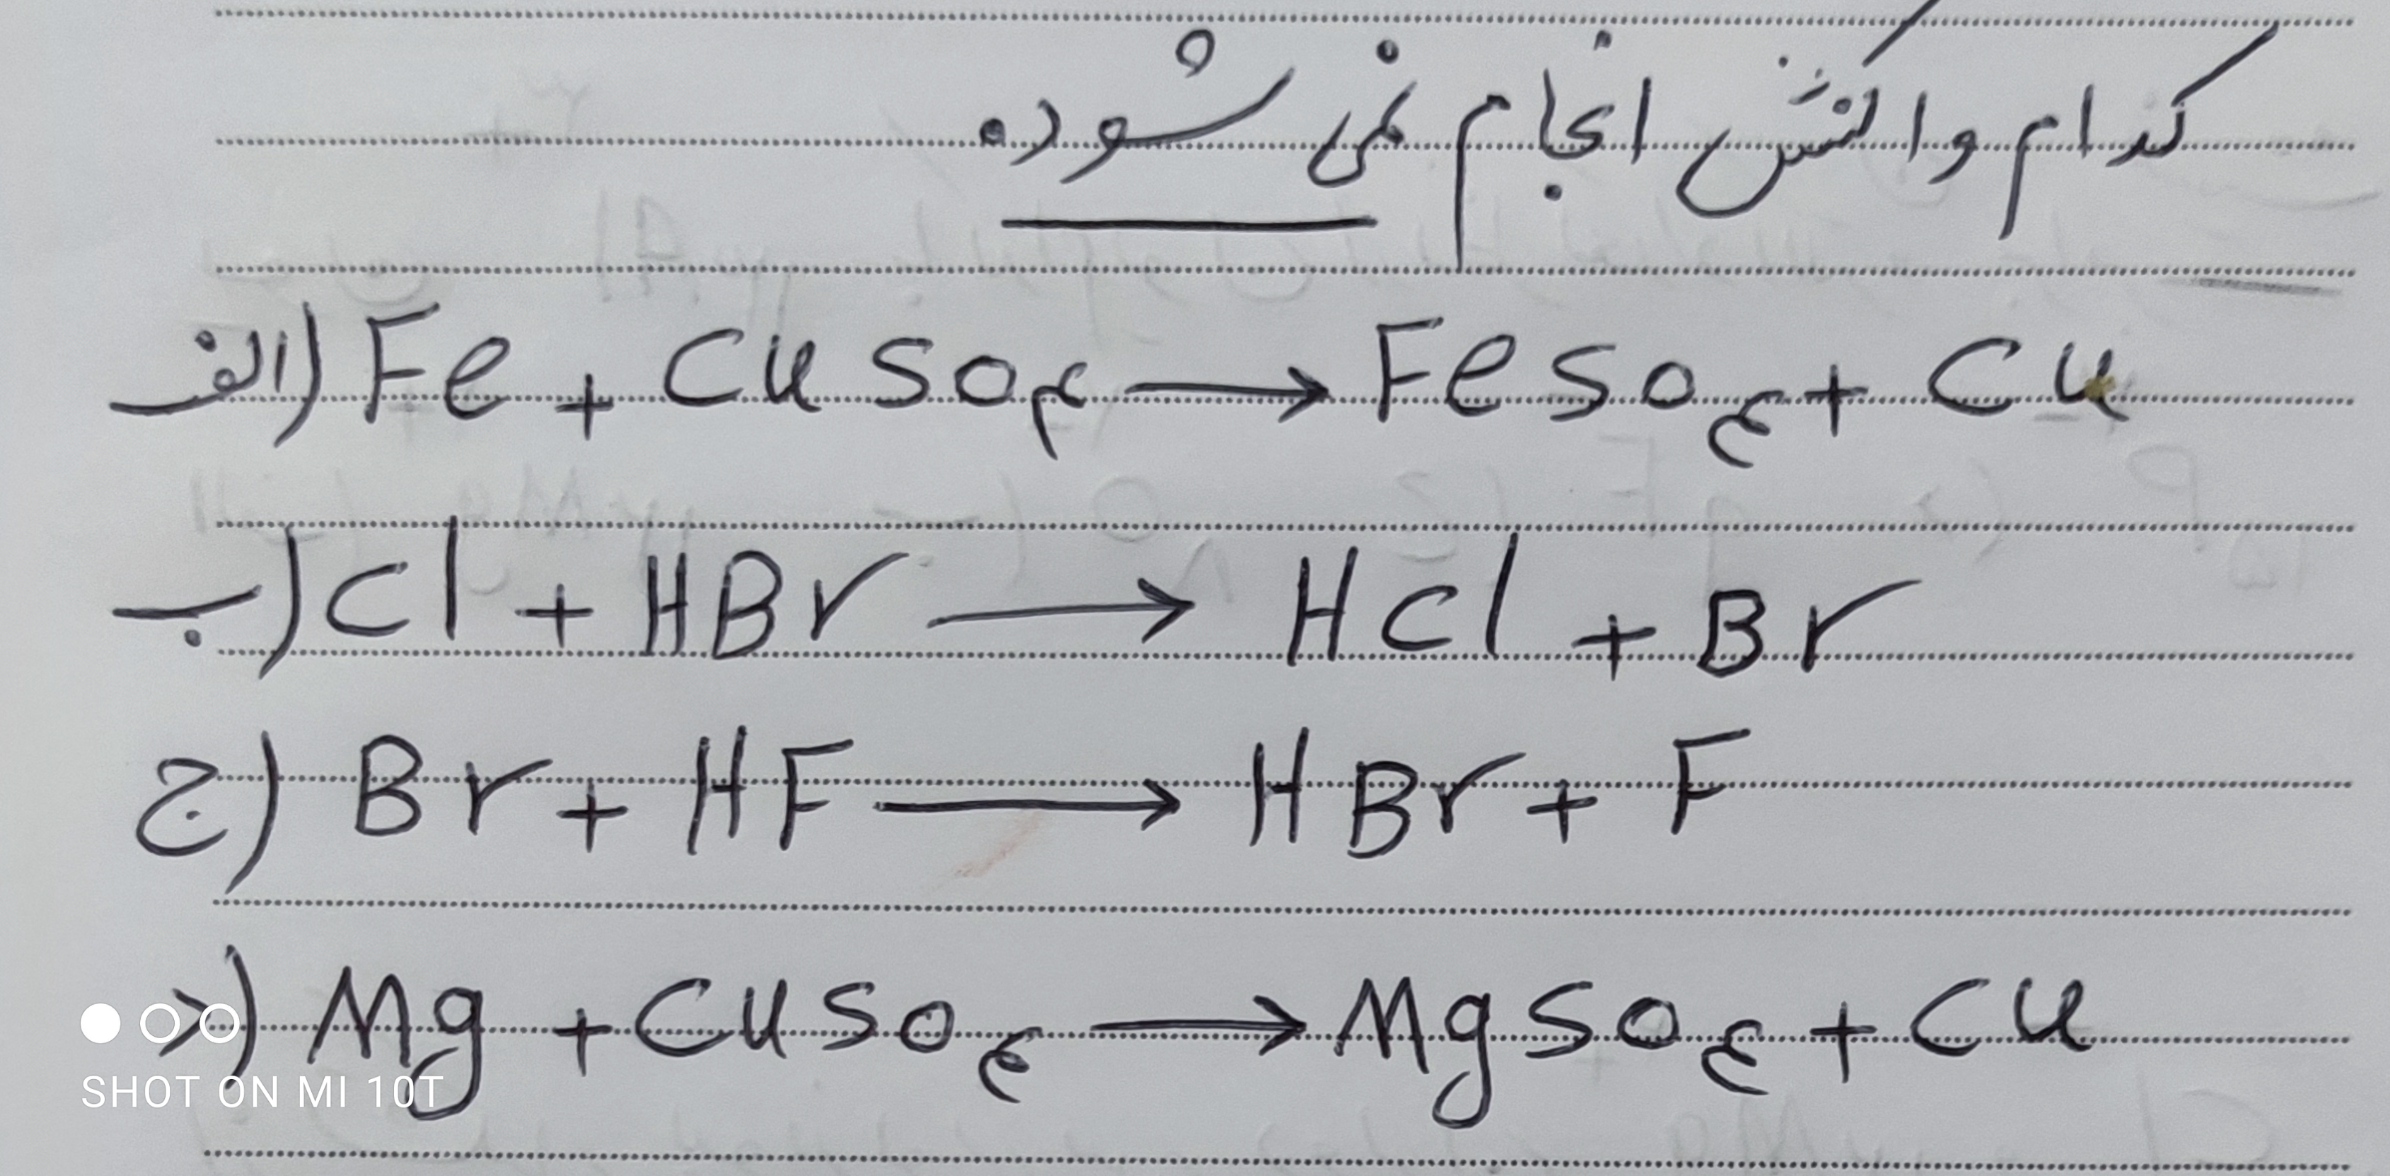 کدام واکنش انجام نمی شود.
الف) Fe + CuSO۴ → FeSO۴ + Cu
ب) Cl + HBr → HCl + Br
ج) Br + HF → HBr + F
د) Mg + CuSO۴ → MgSO۴ + Cu
SHOT ON MI 10T